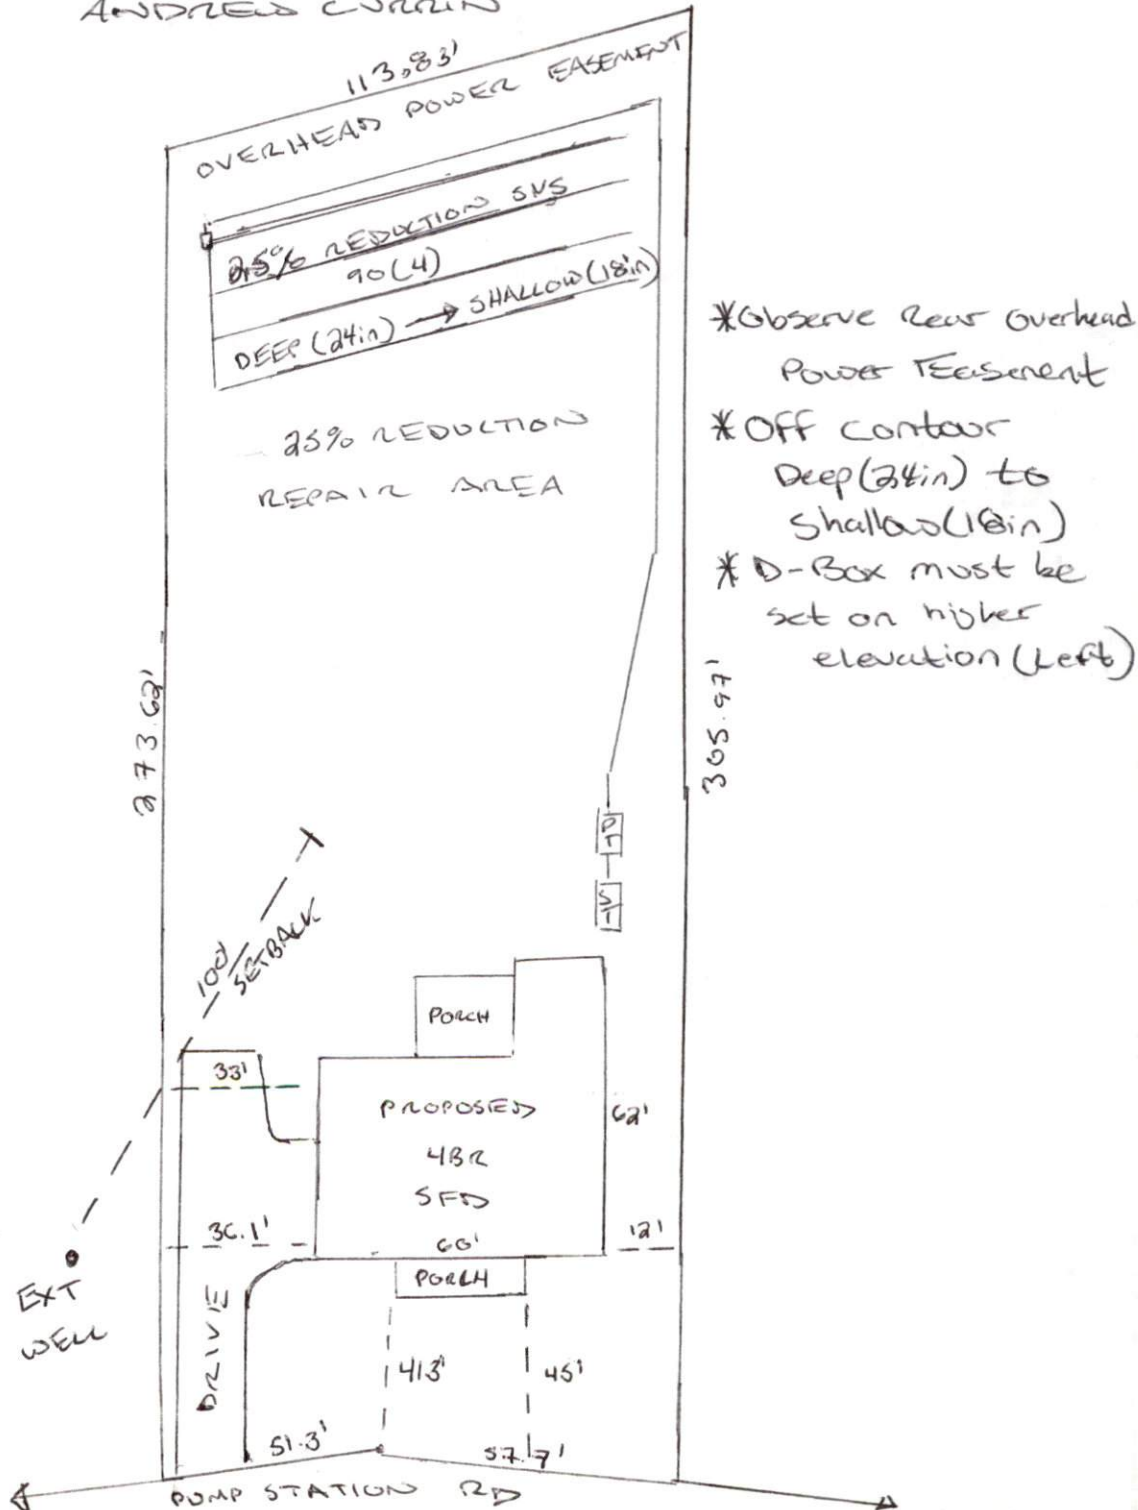 ANDREW CURRIN
113,83'
OVERHEAD POWER EASEMENT
25% REDUCTION SNS
90(4)
DEEP (24in) → SHALLOW (18in)
25% REDUCTION
REPAIR AREA
*Observe Rear Overhead
Power Easement
*Off contour
Deep (24in) to
Shallow (18in)
*D-Box must be
set on higher
elevation (Left)
273.62'
305.97'
PT
ST
100'
SETBACK
PORCH
33'
PROPOSED
62'
4BR
SFD
36.1'
60'
12'
PORCH
EXT
WELL
DRIVE
413'
45'
51.3'
57.7'
PUMP STATION RD